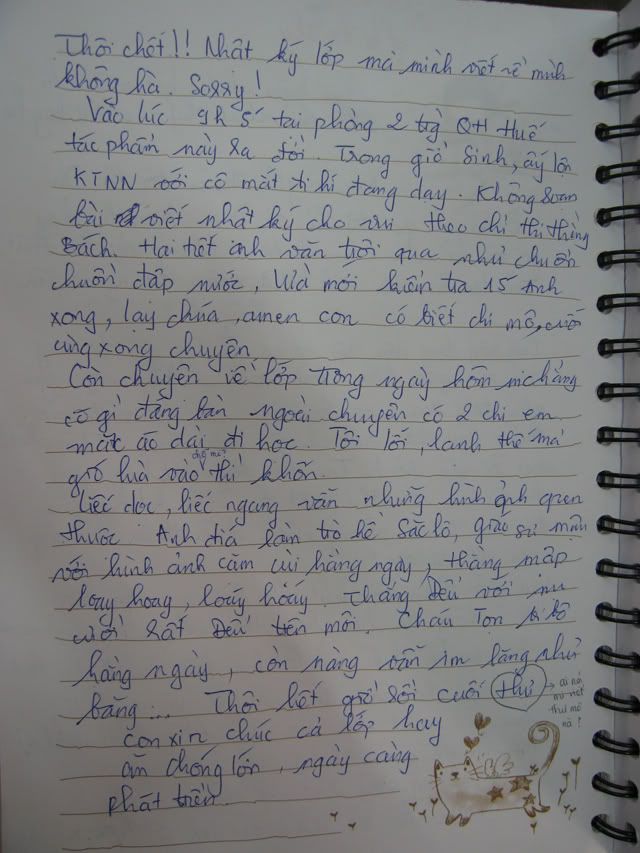 Thôi chết!! Nhật ký lớp mà mình viết về mình
không hà. Sorry!
Vào lúc 9h 5' tại phòng 2 trg QH Huế
tác phẩm này ra đời. Trong giờ Sinh, ấy lộn
KTNN với cô mắt ti hí đang dạy. Không soạn
bài viết nhật ký cho vui theo chỉ thị thằng
Bách. Hai tiết anh văn trôi qua như chuồn
chuồn đạp nước, vừa mới kiểm tra 15 Anh
xong, lạy chúa, amen con có biết chi mô, cuối
cùng xong chuyện
Còn chuyện về lớp trong ngày hôm ni chẳng
có gì đáng bàn ngoài chuyện có 2 chị em
mặc áo dài đi học. Tội lỗi, lạnh thế mà
gió lùa vào thì khốn.
Liếc dọc, liếc ngang vẫn những hình ảnh quen
thuộc. Anh đá làm trò hề Sác lô, giáo sư
với hình ảnh cặm cụi hàng ngày, thằng mập
loay hoay, loáy hoáy. Thằng Đều với nụ
cười rất Đều trên môi. Cháu Ton
hằng ngày, còn nàng vẫn im lặng như
băng... Thôi hết giờ rồi cuối thư → ai nói
mi viết
thư mô
nà?
Con xin chúc cả lớp hay
ăn chóng lớn, ngày càng
phát triển.